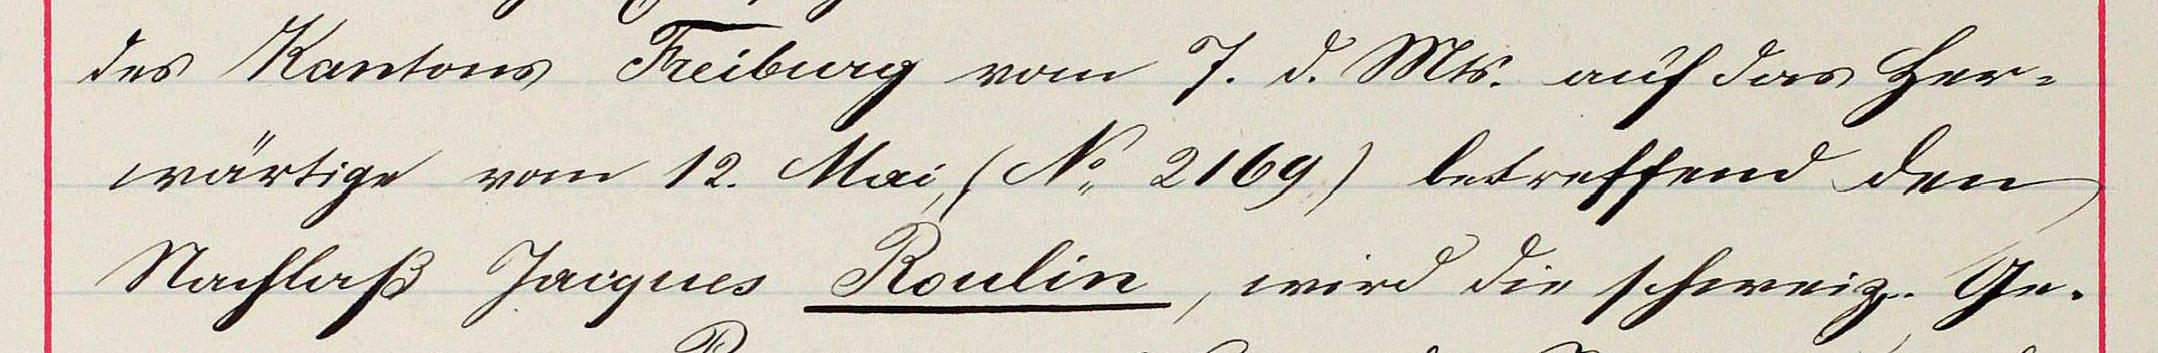 des Kantons Freiburg vom 7. d. Mts. auf das Her-
wärtige vom 12. Mai, (No. 2169) betreffend den
Nachlaß Jacques Roulin, wird die schweiz. Ge-